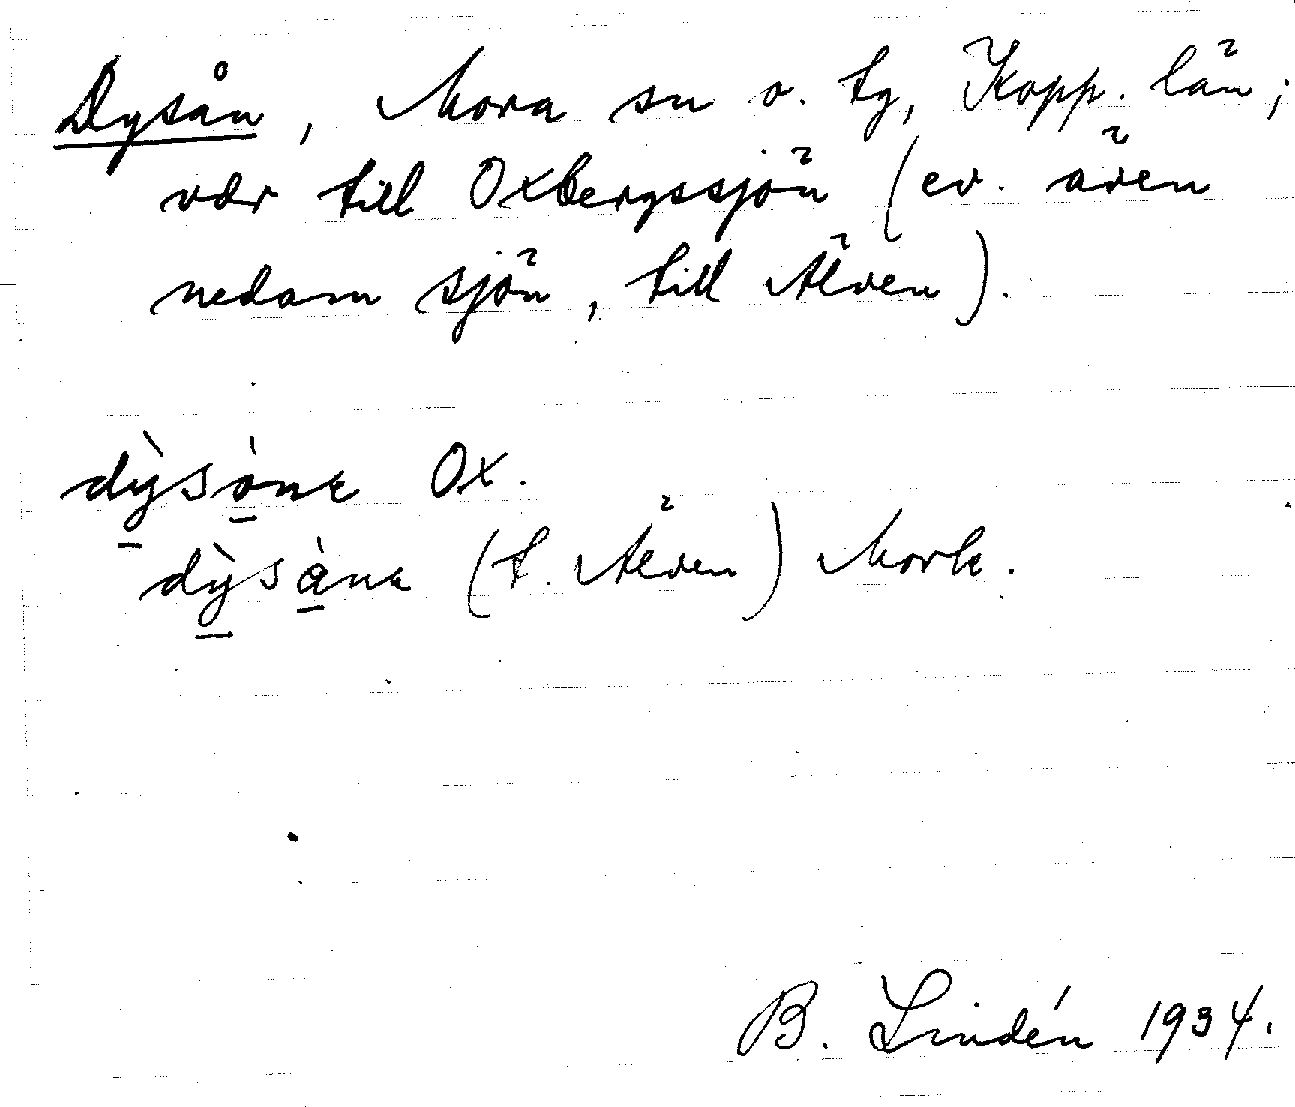 Dysån, Mora sn o. tg, Kopp. län;
vdr till Oxbergssjön (ev. även
nedom sjön, till Älven).
dỳsòna Ox.
dỳsàna (t. Älven) Mork.
B. Lindén 1934.